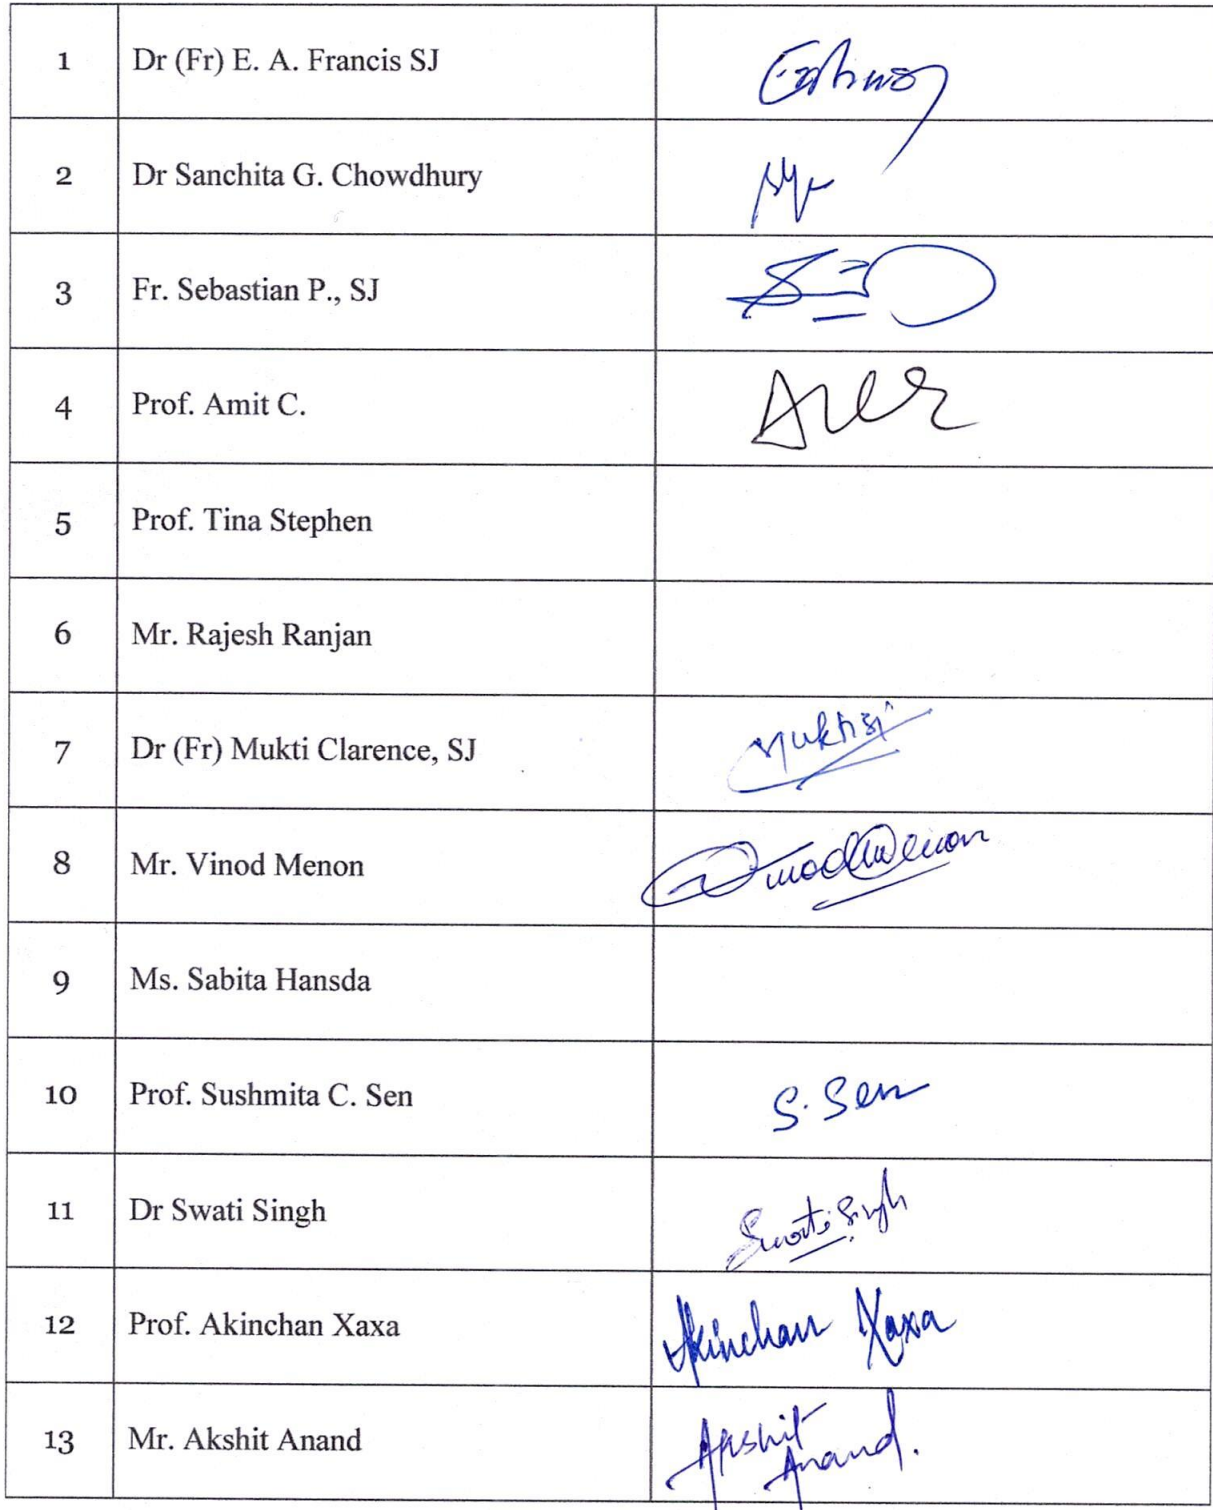 1 Dr (Fr) E. A. Francis SJ
2 Dr Sanchita G. Chowdhury
3 Fr. Sebastian P., SJ
4 Prof. Amit C.
5 Prof. Tina Stephen
6 Mr. Rajesh Ranjan
7 Dr (Fr) Mukti Clarence, SJ Mukti SJ
8 Mr. Vinod Menon Vinod Menon
9 Ms. Sabita Hansda
10 Prof. Sushmita C. Sen S. Sen
11 Dr Swati Singh Swati Singh
12 Prof. Akinchan Xaxa Akinchan Xaxa
13 Mr. Akshit Anand Akshit
Anand.